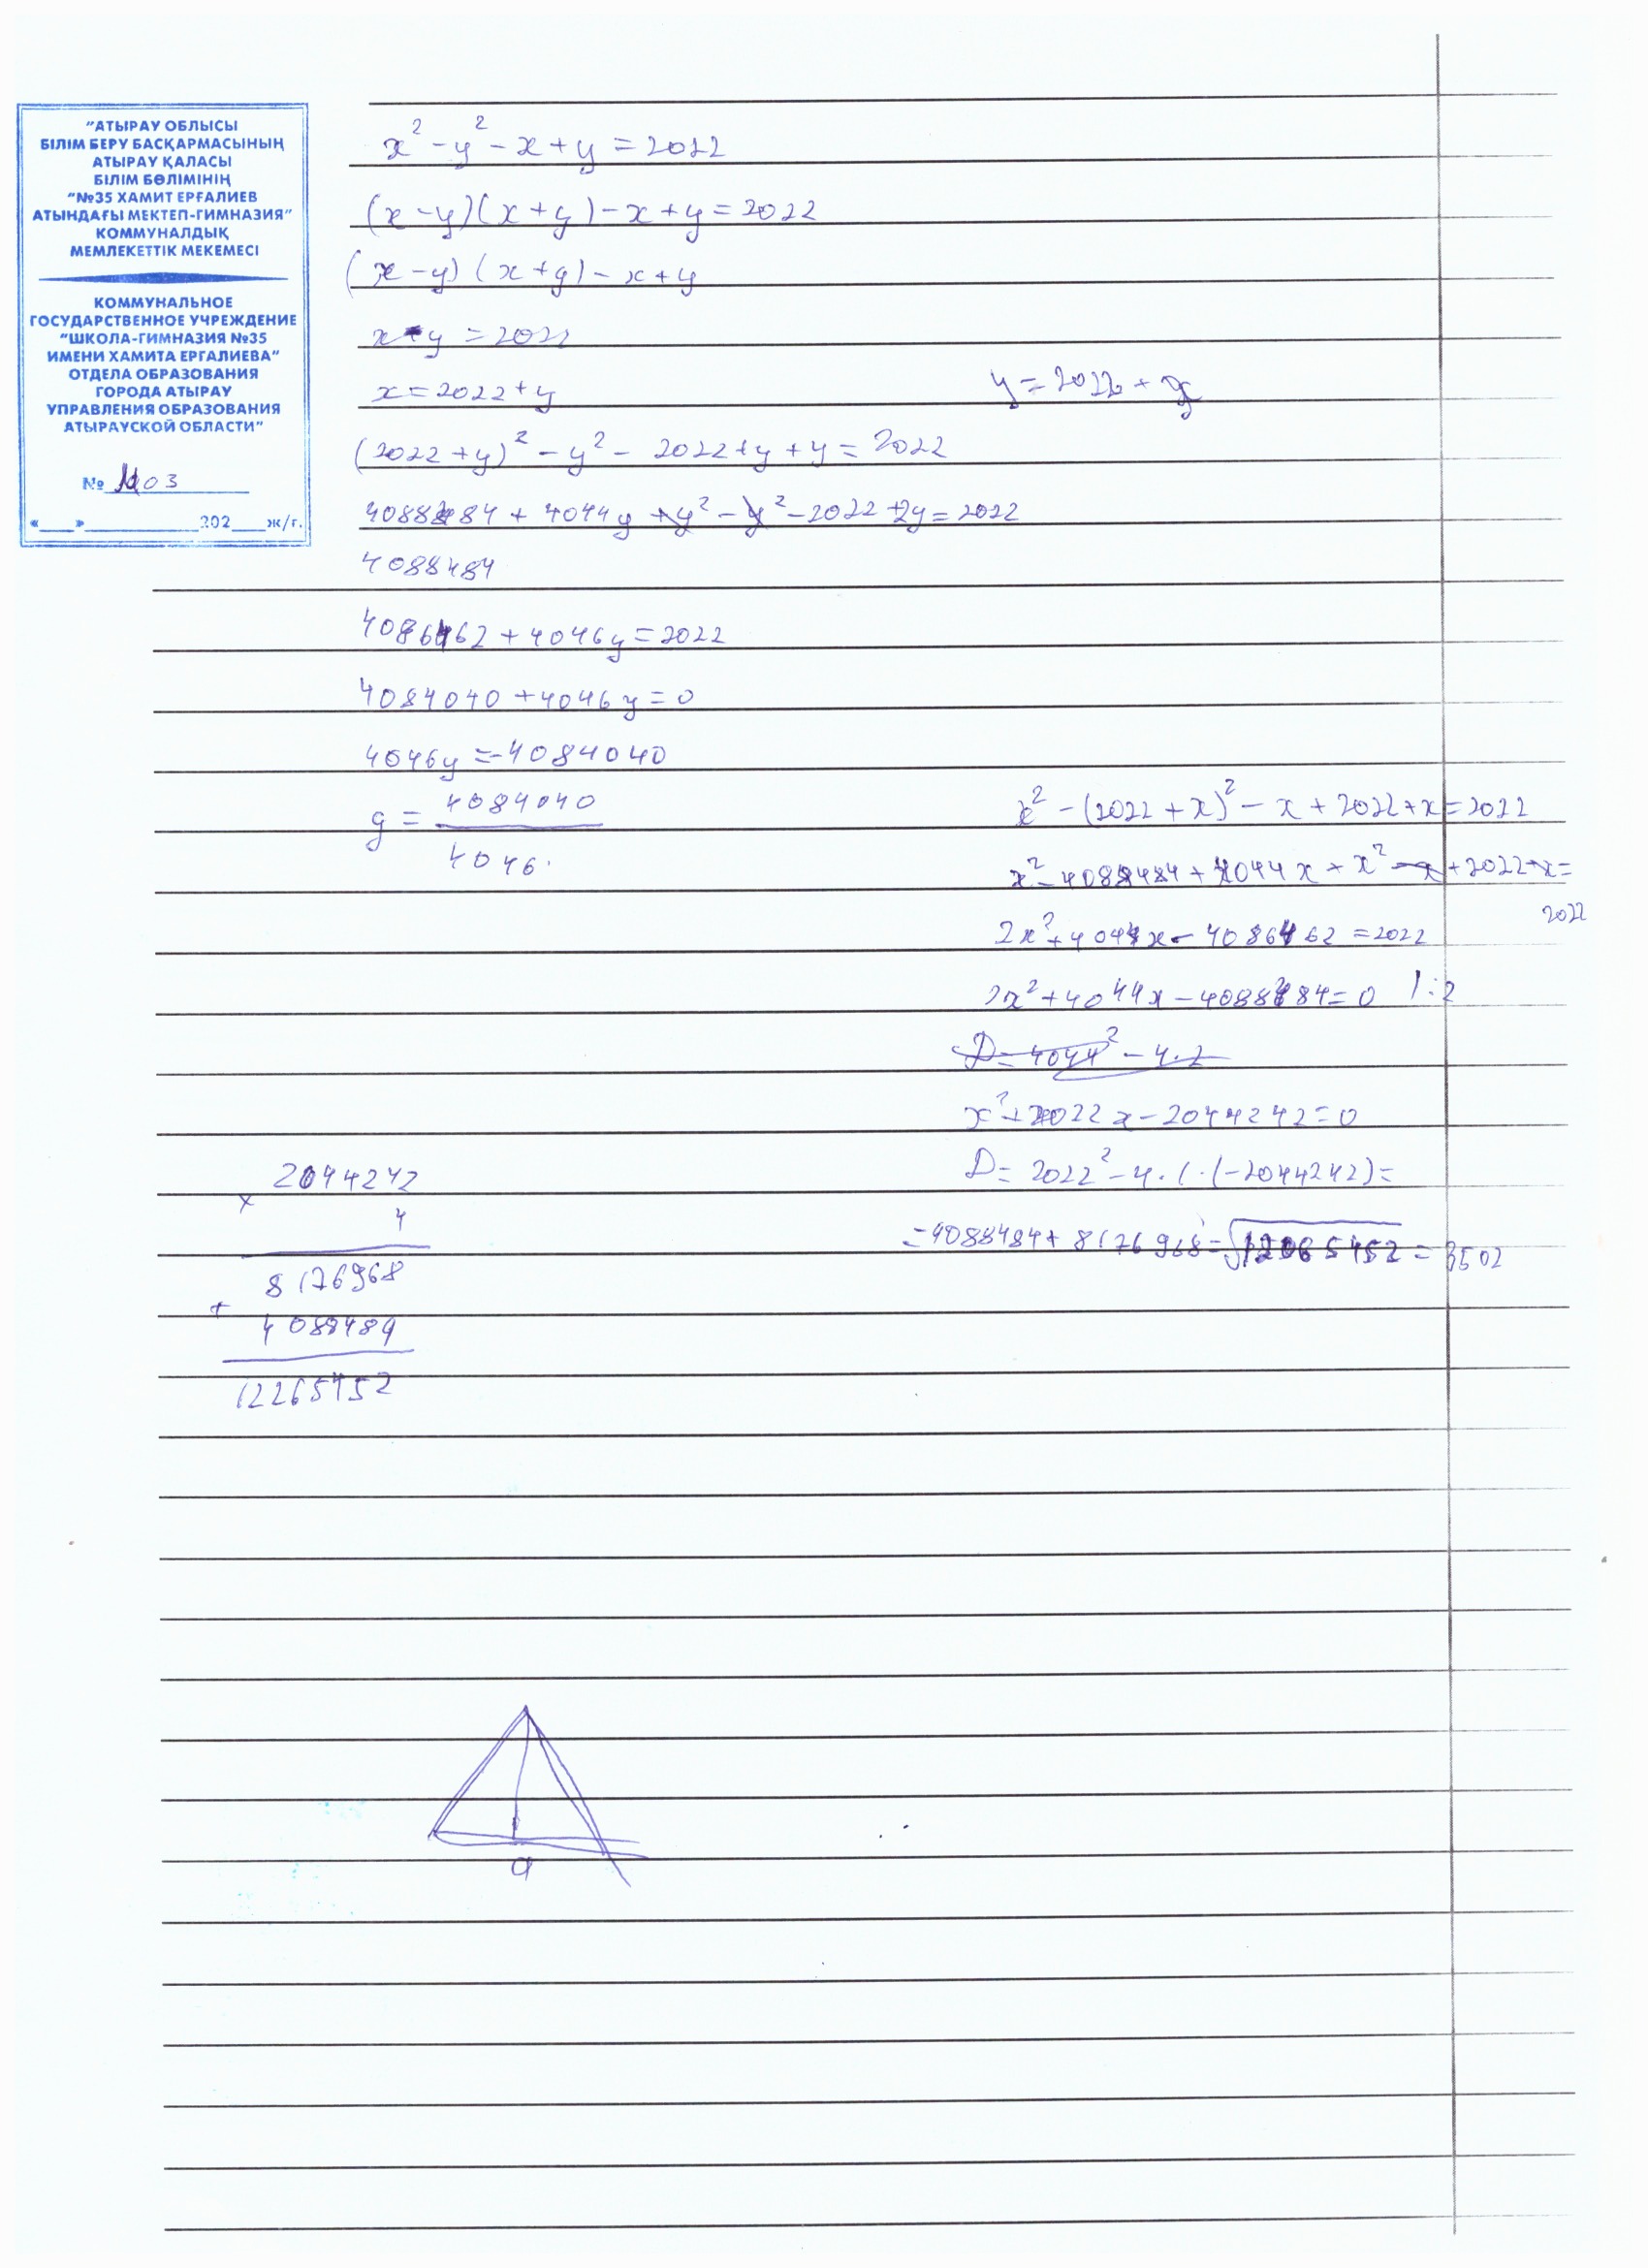 "АТЫРАУ ОБЛЫСЫ
БІЛІМ БЕРУ БАСҚАРМАСЫНЫҢ
АТЫРАУ ҚАЛАСЫ
БІЛІМ БӨЛІМІНІҢ
"№35 ХАМИТ ЕРҒАЛИЕВ
АТЫНДАҒЫ МЕКТЕП-ГИМНАЗИЯ"
КОММУНАЛДЫҚ
МЕМЛЕКЕТТІК МЕКЕМЕСІ
КОММУНАЛЬНОЕ
ГОСУДАРСТВЕННОЕ УЧРЕЖДЕНИЕ
"ШКОЛА-ГИМНАЗИЯ №35
ИМЕНИ ХАМИТА ЕРГАЛИЕВА"
ОТДЕЛА ОБРАЗОВАНИЯ
ГОРОДА АТЫРАУ
УПРАВЛЕНИЯ ОБРАЗОВАНИЯ
АТЫРАУСКОЙ ОБЛАСТИ"
№ 1103
«___»____________202___ж/г.
x² - y² - x + y = 2022
(x - y)(x + y) - x + y = 2022
(x - y)(x + y) - x + y
x - y = 2022
x = 2022 + y
(2022 + y)² - y² - 2022 + y + y = 2022
4088484 + 4044y + y² - y² - 2022 + 2y = 2022
4088484
4086462 + 4046y = 2022
4084040 + 4046y = 0
4046y = -4084040
y = 4084040
4046
y = 2022 + x
x² - (2022 + x)² - x + 2022 + x = 2022
x² - 4088484 + 4044x + x² - x + 2022 + x =
2022
2x² + 4044x - 4086462 = 2022
2x² + 4044x - 4088484 = 0 | : 2
D = 4044² - 4 · 2
x² + 2022x - 2044242 = 0
D = 2022² - 4 · 1 · (-2044242) =
= 4088484 + 8176968 = √12265452 = 3502
2044242
×
4
8176968
+
4088484
12265452
a